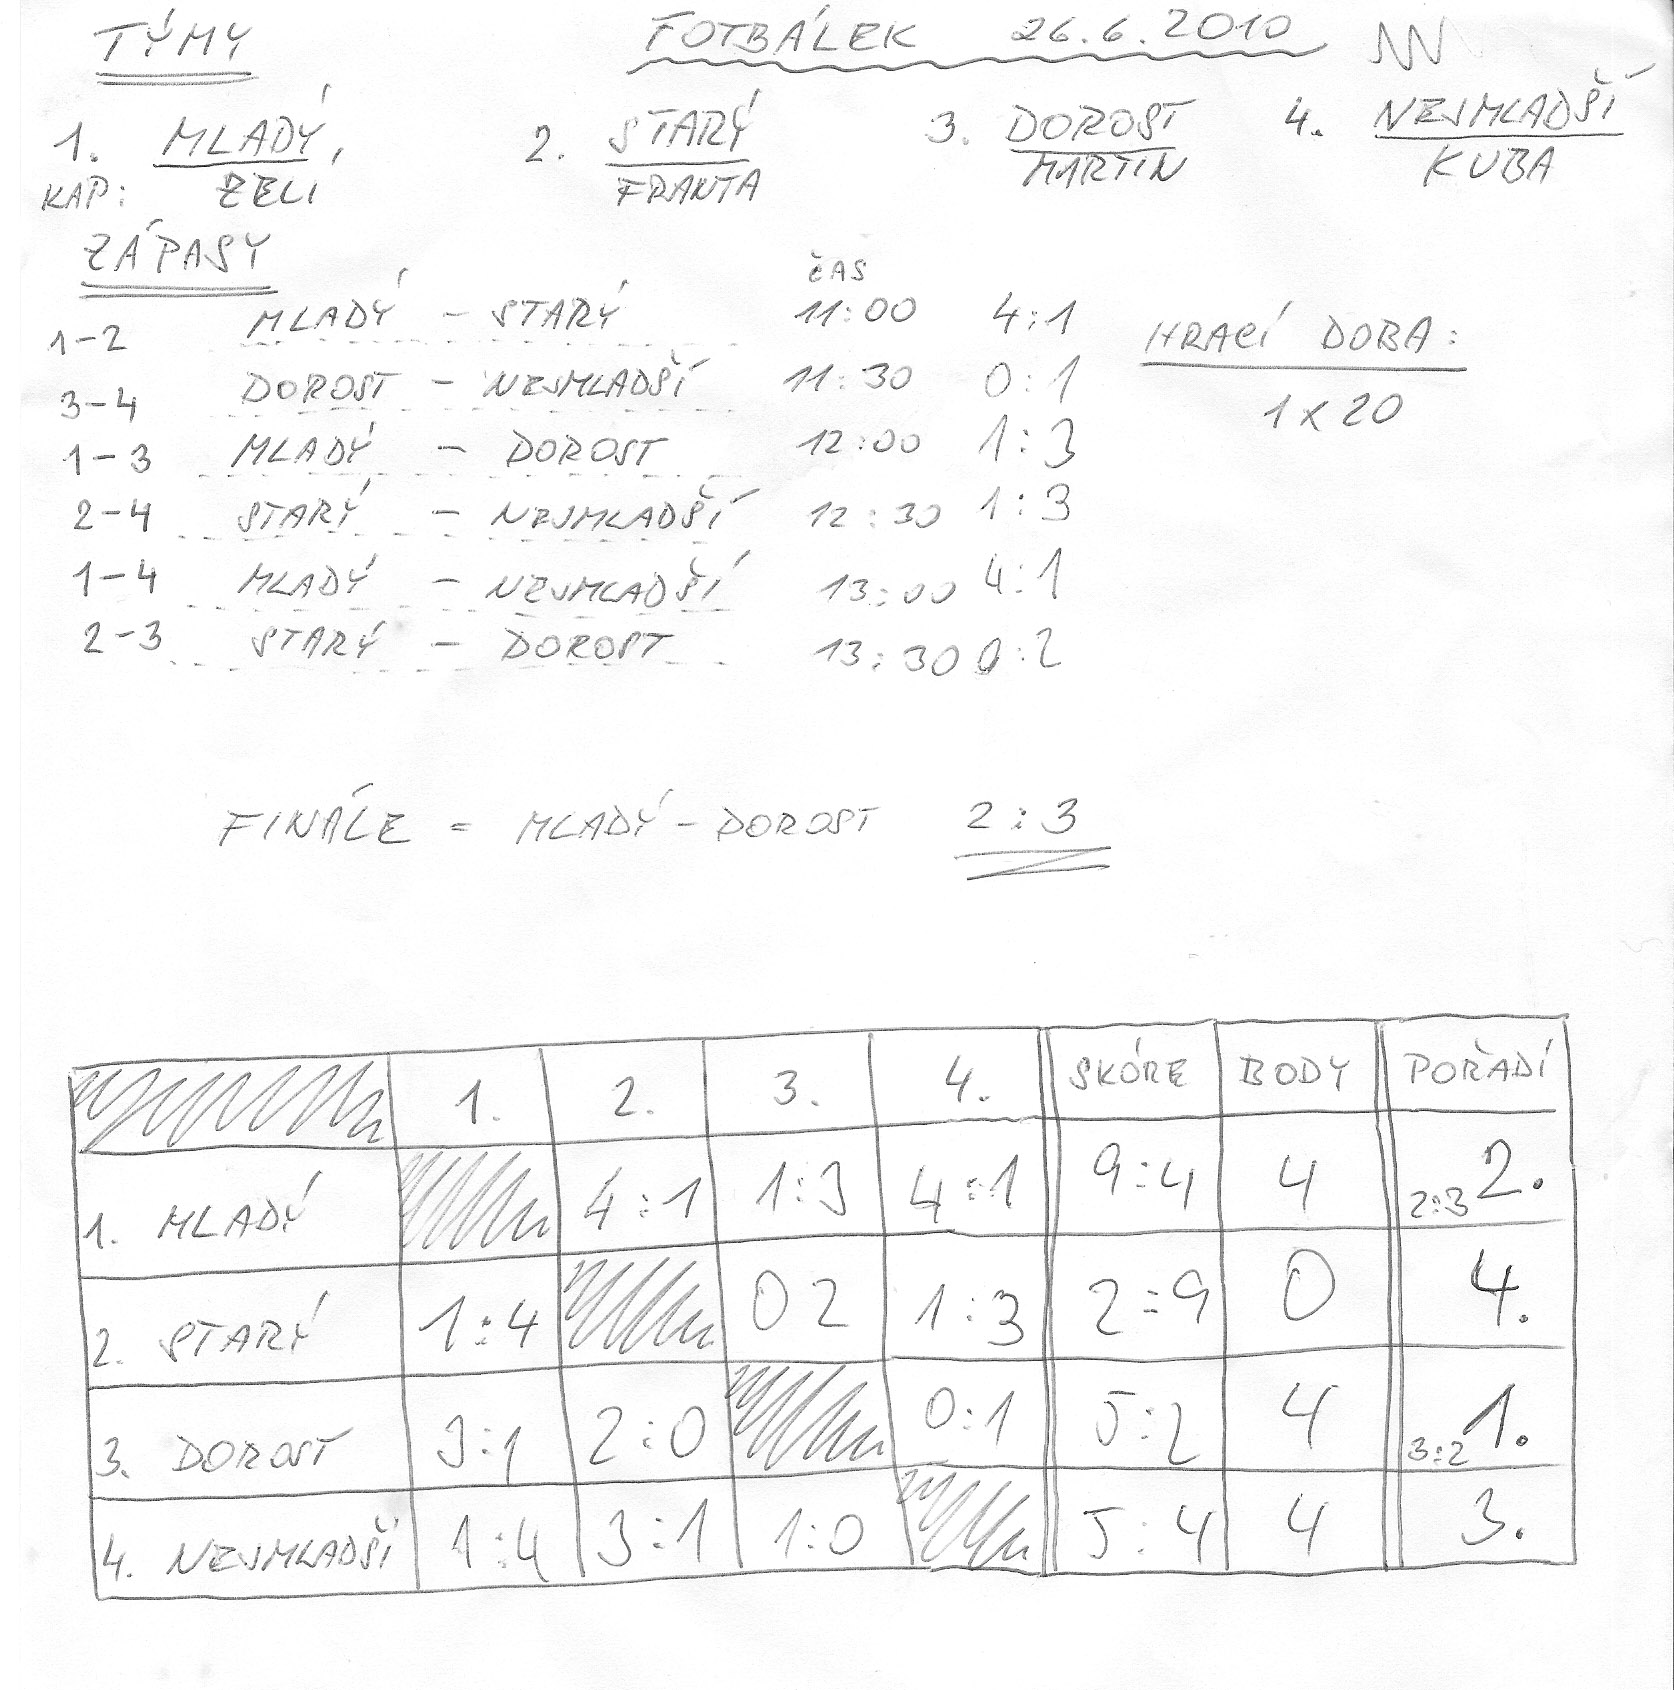 TÝMY FOTBÁLEK 26.6.2010
1. MLADÝ, 2. STARÝ 3. DOROST 4. NEJMLADŠÍ
KAP: ZELÍ FRANTA MARTIN KUBA
ZÁPASY
ČAS
1-2 MLADÝ - STARÝ 11:00 4:1 HRACÍ DOBA:
3-4 DOROST - NEJMLADŠÍ 11:30 0:1 1 x 20
1-3 MLADÝ - DOROST 12:00 1:3
2-4 STARÝ - NEJMLADŠÍ 12:30 1:3
1-4 MLADÝ - NEJMLADŠÍ 13:00 4:1
2-3 STARÝ - DOROST 13:30 0:2
FINÁLE = MLADÝ - DOROST 2:3
1. 2. 3. 4. SKÓRE BODY POŘADÍ
1. MLADÝ 4:1 1:3 4:1 9:4 4 2:3 2.
2. STARÝ 1:4 0 2 1:3 2:9 0 4.
3. DOROST 3:1 2:0 0:1 5:2 4 3:2 1.
4. NEJMLADŠÍ 1:4 3:1 1:0 5:4 4 3.